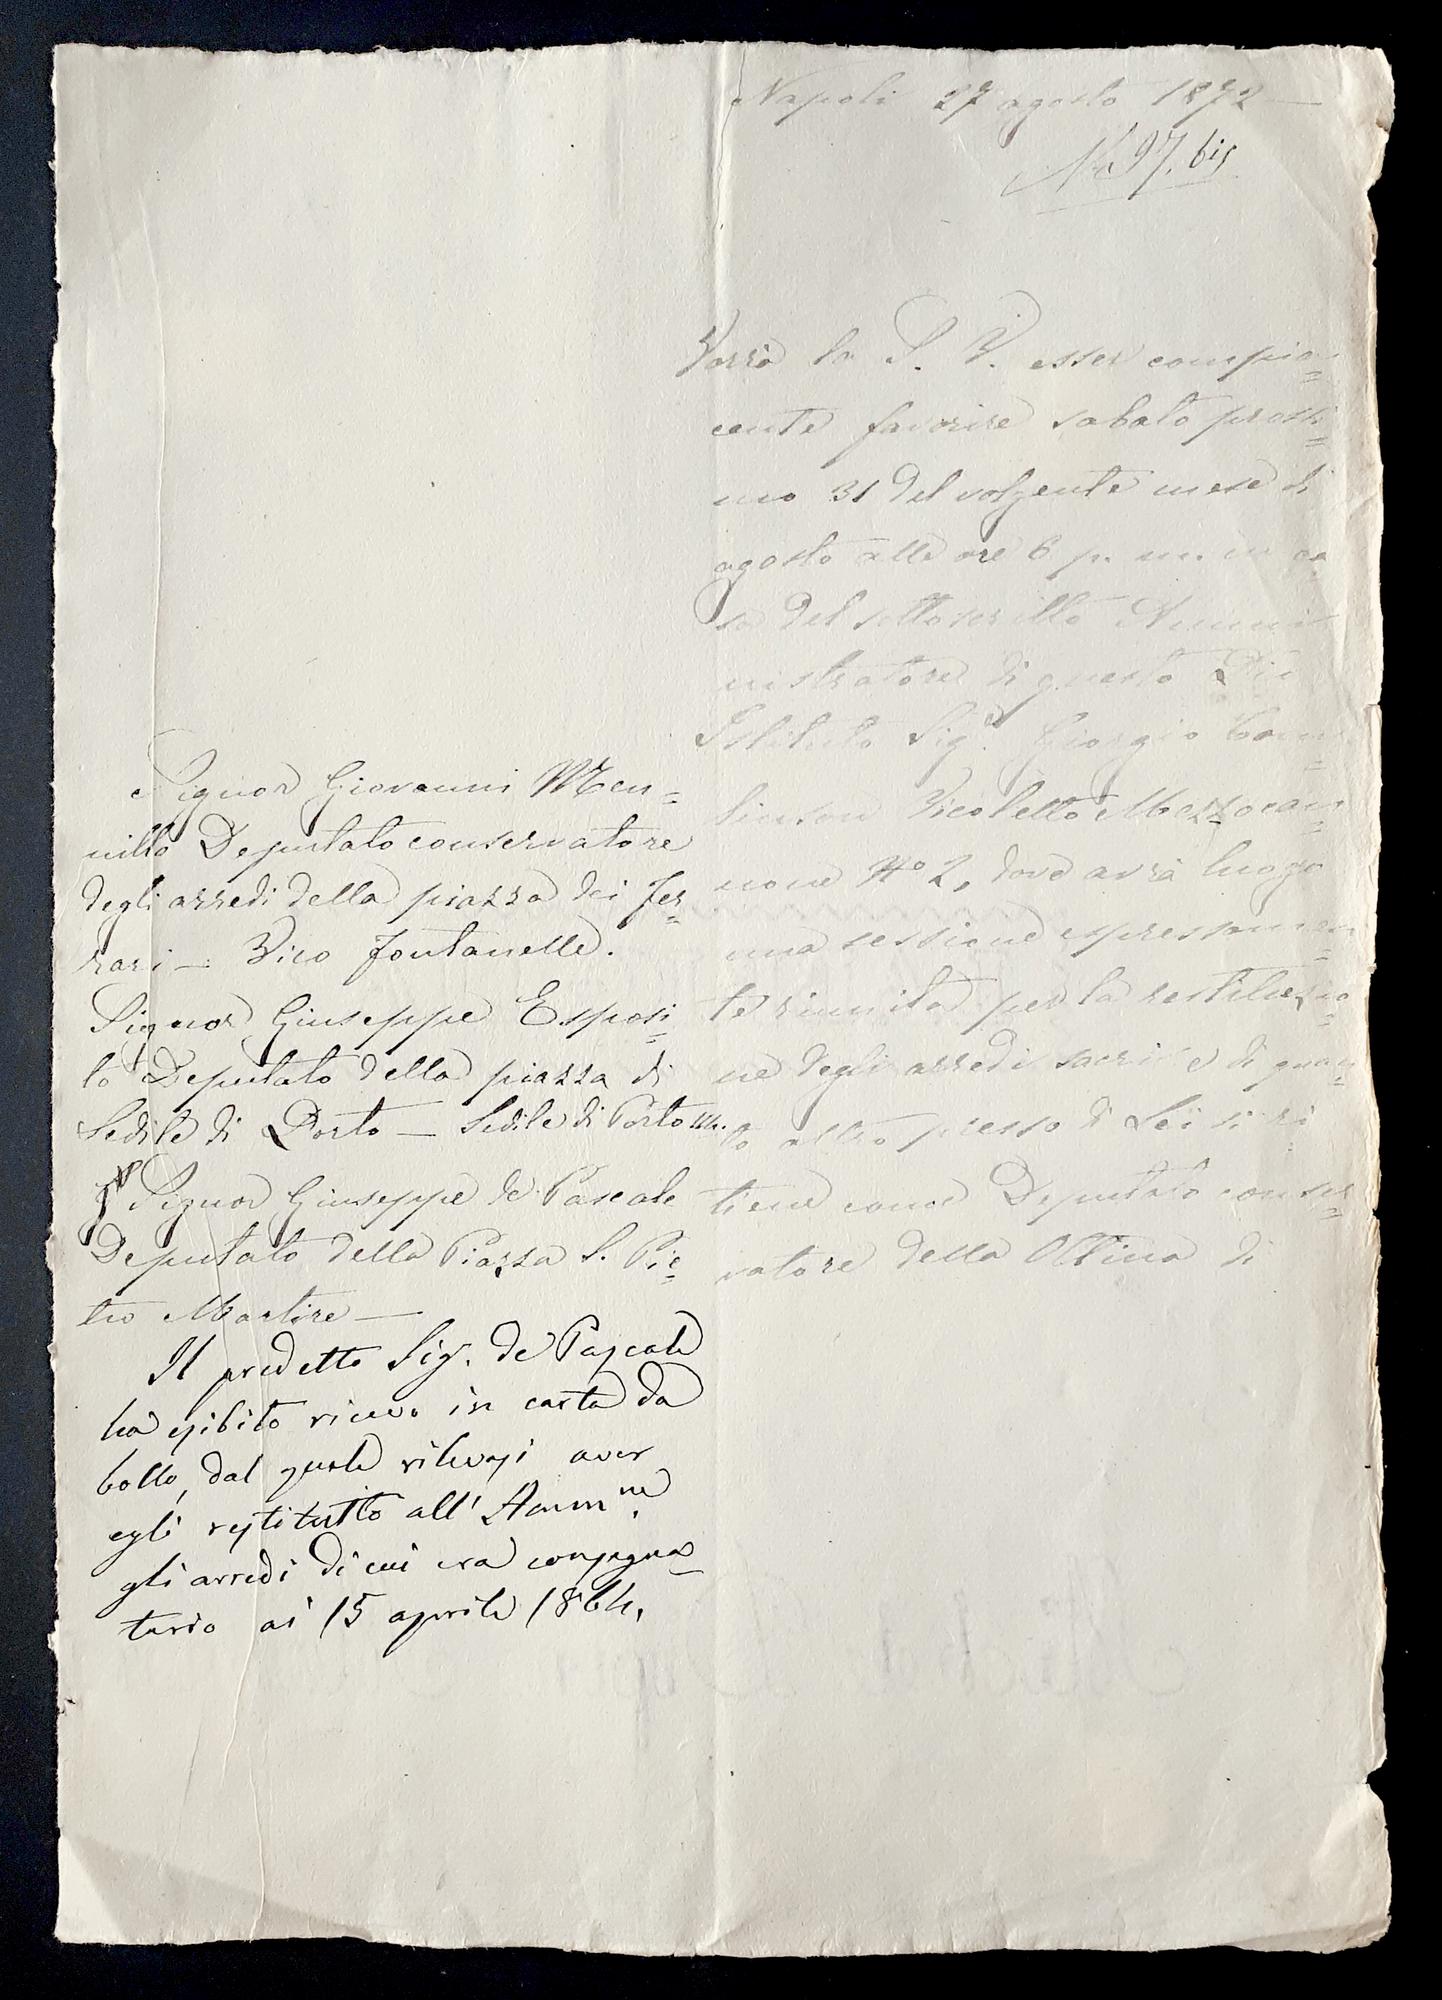 Napoli 27 agosto 1872 —
N. 97. bis
Vorrà la S. V. esser compia=
cente favorire sabato prossi=
mo 31 del volgente mese di
agosto alle ore 6 p. m. in ca
sa del sottoscritto Ammi
nistratore di questo Pio
Istituto Sigr. Giorgio
Vicoletto Mezzocan=
none No 2, dove avrà luogo
una sessione espressamen=
te riunita per la restituzio=
ne degli arredi sacri e di quan=
to altro presso di Lei si ri=
tiene come Deputato conser=
vatore della Ottina di
Signor Giovanni Men=
nillo Deputato conservatore
degli arredi della piazza dei Fer=
rari — Vico Fontanelle.
Signor Giuseppe Esposi=
to Deputato della piazza di
Sedile di Porto — Sedile di Porto
Signor Giuseppe de Pascale
Deputato della Piazza S. Pie=
tro Martire —
Il predetto Sig. de Pascale
ha esibito ricevo in carta da
bollo, dal quale rilevasi aver
egli restituito all' Ammne.
gli arredi di cui era consegna=
tario ai 15 aprile 1864.